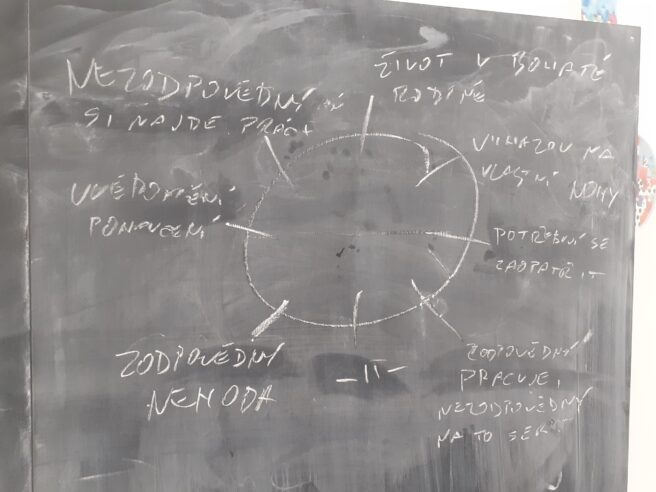 NEZODPOVĚDNÝ
SI NAJDE PRÁCI
ŽIVOT V BOHATÉ
RODINĚ
VYHAZOV NA
VLASTNÍ NOHY
POTŘEBUJÍ SE
ZAOPATŘIT
ZODPOVĚDNÝ
PRACUJE,
NEZODPOVĚDNÝ
NA TO SERE
-II-
ZODPOVĚDNÝ
NEHODA
UVĚDOMĚNÍ
PONAUČENÍ